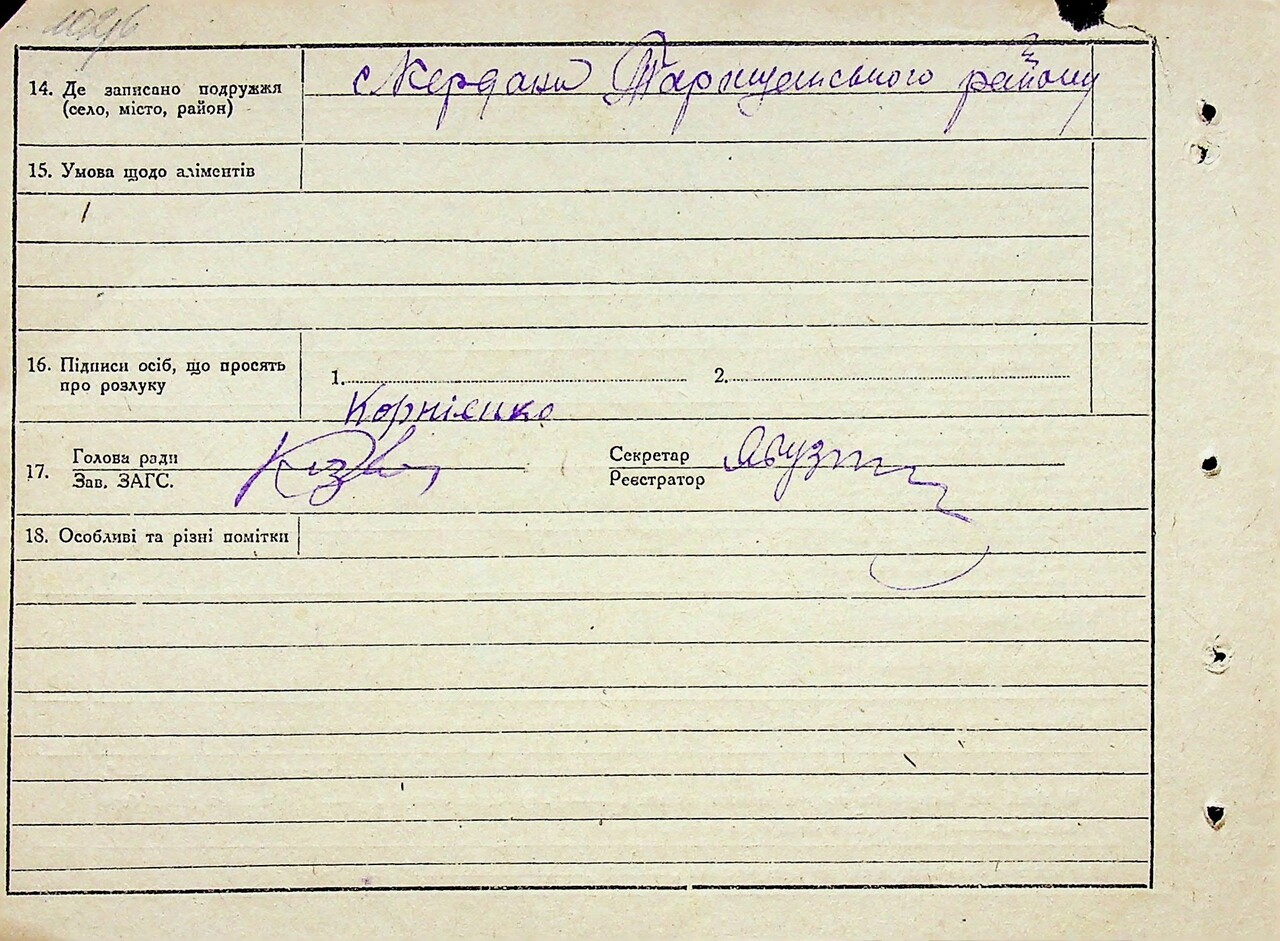 14. Де записано подружжя
(село, місто, район)
с Кердани Таращанського району
15. Умова щодо аліментів
16. Підписи осіб, що просять
про розлуку
1. 2.
Корнієнко
17. Голова ради
Зав. ЗАГС.
Секретар
Реєстратор
18. Особливі та різні помітки